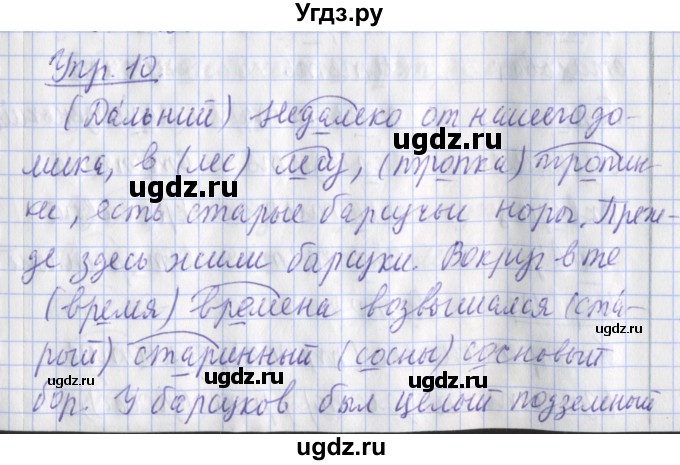 Угдз.ру
Упр. 10.
(Дальний) Недалеко от нашего до-
мика, в (лес) лесу, (тропка) тропин-
ке, есть старые барсучьи норы. Преж-
де здесь жили барсуки. Вокруг в те
(время) времена возвышался (ста-
рый) старинный (сосны) сосновый
бор. У барсуков был целый подземный
ugdz.ru ugdz.ru
ugdz.ru ugdz.ru ugdz.ru
ugdz.ru ugdz.ru
ugdz.ru ugdz.ru ugdz.ru
ugdz.ru ugdz.ru
ugdz.ru